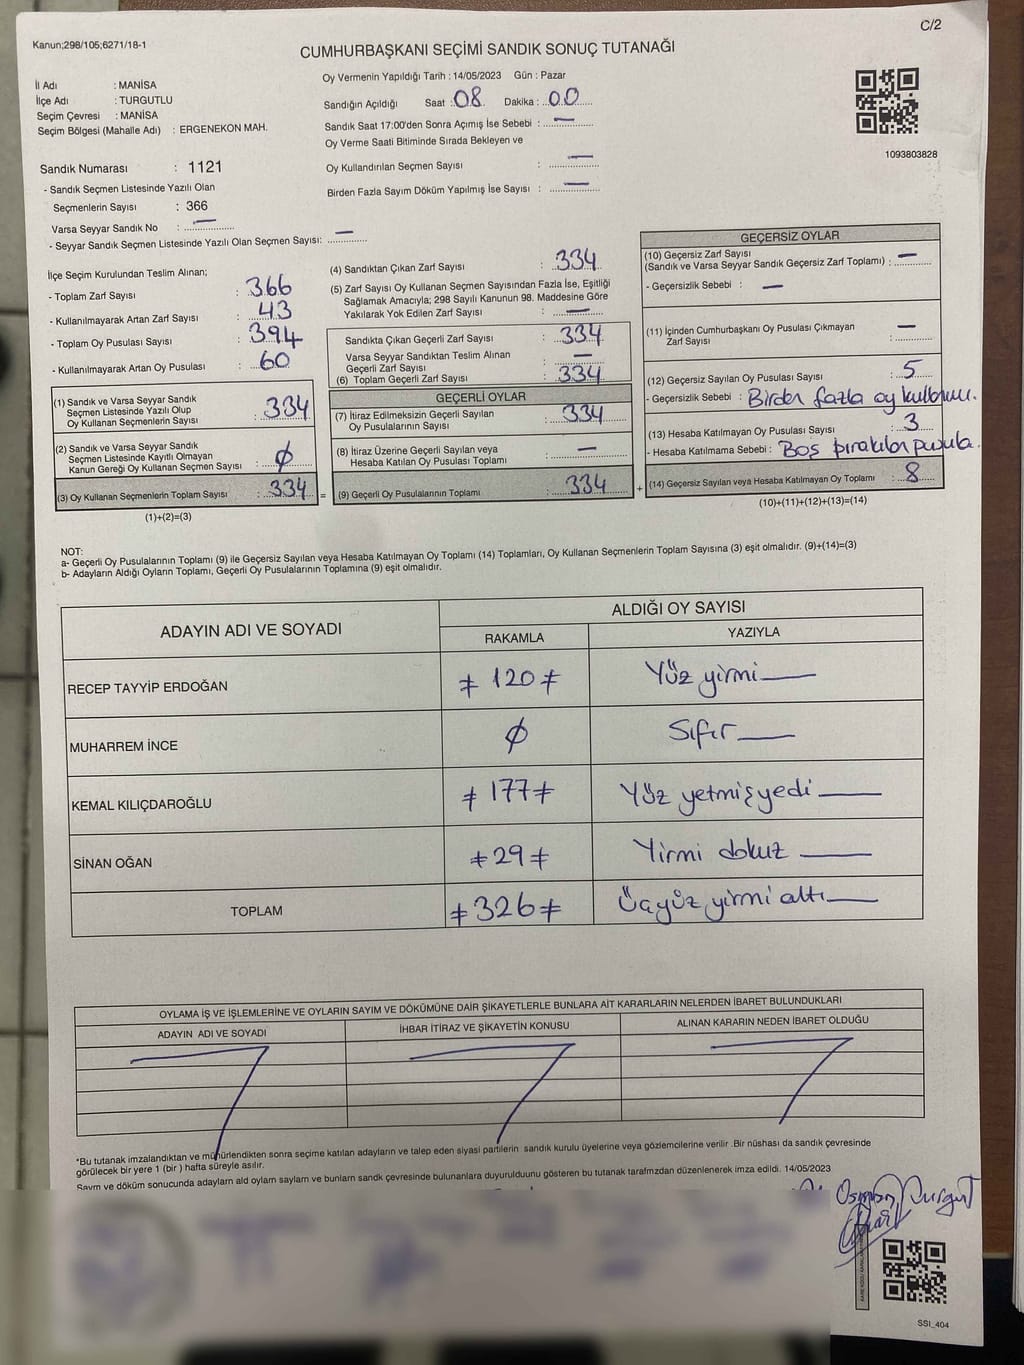 C/2
Kanun;298/105;6271/18-1
CUMHURBAŞKANI SEÇİMİ SANDIK SONUÇ TUTANAĞI
İl Adı : MANİSA
İlçe Adı : TURGUTLU
Seçim Çevresi : MANİSA
Seçim Bölgesi (Mahalle Adı) : ERGENEKON MAH.
Sandık Numarası : 1121
- Sandık Seçmen Listesinde Yazılı Olan
Seçmenlerin Sayısı : 366
Varsa Seyyar Sandık No : —
- Seyyar Sandık Seçmen Listesinde Yazılı Olan Seçmen Sayısı: —
Oy Vermenin Yapıldığı Tarih : 14/05/2023 Gün : Pazar
Sandığın Açıldığı Saat : 08 Dakika : 00
Sandık Saat 17:00'den Sonra Açımış İse Sebebi : —
Oy Verme Saati Bitiminde Sırada Bekleyen ve
Oy Kullandırılan Seçmen Sayısı : —
Birden Fazla Sayım Döküm Yapılmış İse Sayısı : —
1093803828
İlçe Seçim Kurulundan Teslim Alınan;
- Toplam Zarf Sayısı : 366
- Kullanılmayarak Artan Zarf Sayısı : 43
- Toplam Oy Pusulası Sayısı : 394
- Kullanılmayarak Artan Oy Pusulası : 60
(1) Sandık ve Varsa Seyyar Sandık
Seçmen Listesinde Yazılı Olup
Oy Kullanan Seçmenlerin Sayısı : 334
(2) Sandık ve Varsa Seyyar Sandık
Seçmen Listesinde Kayıtlı Olmayan
Kanun Gereği Oy Kullanan Seçmen Sayısı : Ø
(3) Oy Kullanan Seçmenlerin Toplam Sayısı : 334 =
(1)+(2)=(3)
(4) Sandıktan Çıkan Zarf Sayısı : 334
(5) Zarf Sayısı Oy Kullanan Seçmen Sayısından Fazla İse, Eşitliği
Sağlamak Amacıyla; 298 Sayılı Kanunun 98. Maddesine Göre
Yakılarak Yok Edilen Zarf Sayısı : —
Sandıkta Çıkan Geçerli Zarf Sayısı : 334
Varsa Seyyar Sandıktan Teslim Alınan
Geçerli Zarf Sayısı : —
(6) Toplam Geçerli Zarf Sayısı : 334
GEÇERLİ OYLAR
(7) İtiraz Edilmeksizin Geçerli Sayılan
Oy Pusulalarının Sayısı : 334
(8) İtiraz Üzerine Geçerli Sayılan veya
Hesaba Katılan Oy Pusulası Toplamı : —
(9) Geçerli Oy Pusulalarının Toplamı : 334 +
GEÇERSİZ OYLAR
(10) Geçersiz Zarf Sayısı
(Sandık ve Varsa Seyyar Sandık Geçersiz Zarf Toplamı) : —
- Geçersizlik Sebebi : —
(11) İçinden Cumhurbaşkanı Oy Pusulası Çıkmayan
Zarf Sayısı : —
(12) Geçersiz Sayılan Oy Pusulası Sayısı : 5
- Geçersizlik Sebebi : Birden fazla oy kullanımı.
(13) Hesaba Katılmayan Oy Pusulası Sayısı : 3
- Hesaba Katılmama Sebebi : Boş bırakılan pusula.
(14) Geçersiz Sayılan veya Hesaba Katılmayan Oy Toplamı : 8
(10)+(11)+(12)+(13)=(14)
NOT:
a- Geçerli Oy Pusulalarının Toplamı (9) ile Geçersiz Sayılan veya Hesaba Katılmayan Oy Toplamı (14) Toplamları, Oy Kullanan Seçmenlerin Toplam Sayısına (3) eşit olmalıdır. (9)+(14)=(3)
b- Adayların Aldığı Oyların Toplamı, Geçerli Oy Pusulalarının Toplamına (9) eşit olmalıdır.
ADAYIN ADI VE SOYADI
ALDIĞI OY SAYISI
RAKAMLA YAZIYLA
RECEP TAYYİP ERDOĞAN ≠ 120 ≠ Yüz yirmi —
MUHARREM İNCE Ø Sıfır —
KEMAL KILIÇDAROĞLU ≠ 177 ≠ Yüz yetmişyedi —
SİNAN OĞAN ≠ 29 ≠ Yirmi dokuz —
TOPLAM ≠ 326 ≠ Üçyüz yirmi altı —
OYLAMA İŞ VE İŞLEMLERİNE VE OYLARIN SAYIM VE DÖKÜMÜNE DAİR ŞİKAYETLERLE BUNLARA AİT KARARLARIN NELERDEN İBARET BULUNDUKLARI
ADAYIN ADI VE SOYADI İHBAR İTİRAZ VE ŞİKAYETİN KONUSU ALINAN KARARIN NEDEN İBARET OLDUĞU
*Bu tutanak imzalandıktan ve mühürlendikten sonra seçime katılan adayların ve talep eden siyasi partilerin sandık kurulu üyelerine veya gözlemcilerine verilir .Bir nüshası da sandık çevresinde
görülecek bir yere 1 (bir ) hafta süreyle asılır.
Sayım ve döküm sonucunda adayların aldı oyların sayıların ve bunların sandık çevresinde bulunanlara duyurulduunu gösteren bu tutanak tarafımzdan düzenlenerek imza edildi. 14/05/2023
Osman Durgut
SSI_404